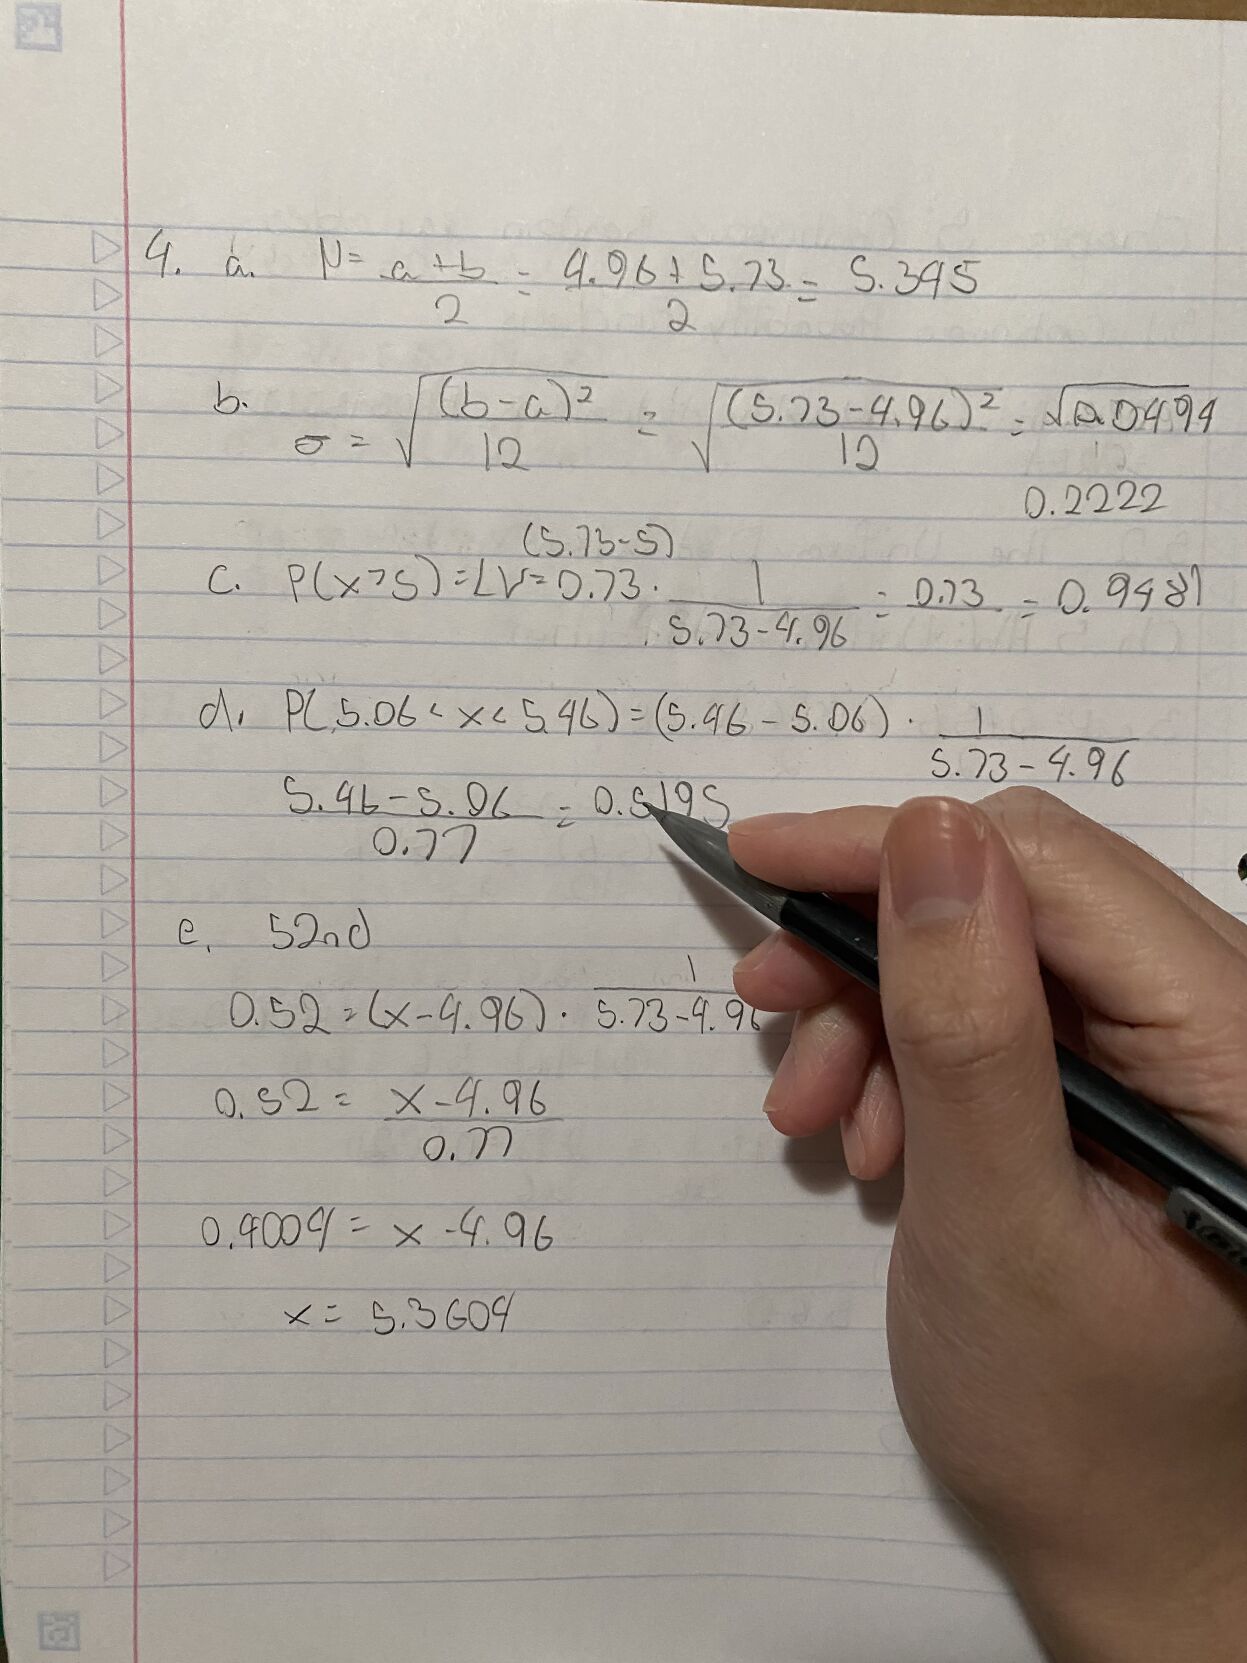 4. a. μ = a+b/2 = 4.96+5.73/2 = 5.345
b. σ = √((b-a)²/12) = √((5.73-4.96)²/12) = √0.0494
0.2222
(5.73-5)
c. P(x>5) = LW = 0.73 · 1/5.73-4.96 = 0.73 = 0.9481
d. P(5.06 < x < 5.46) = (5.46 - 5.06) · 1/5.73-4.96
5.46-5.06/0.77 = 0.5195
e. 52nd
0.52 = (x-4.96) · 1/5.73-4.96
0.52 = x-4.96/0.77
0.4004 = x - 4.96
x = 5.3604